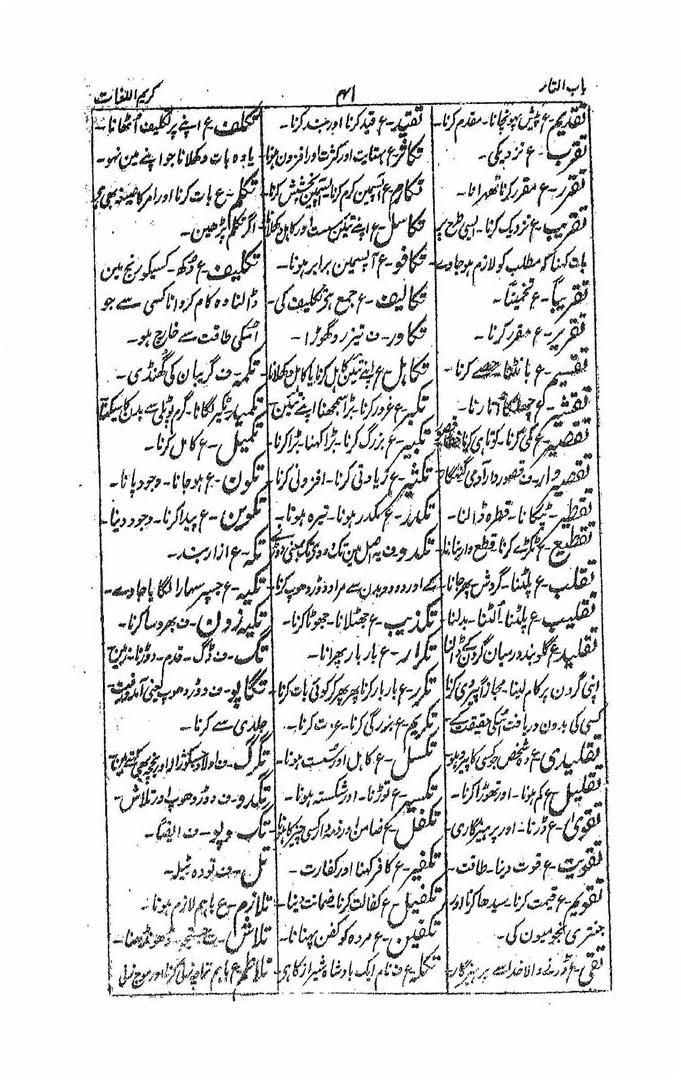 باب التار
۴۱
کریم اللغات
تقدیم۔ ع پیش پہونچانا۔ مقدم کرنا۔
تقرب۔ ع نزدیکی۔
تقرر۔ ع مقرر کرنا ٹھہرانا۔
تقریب۔ ع نزدیک کرنا۔ ایسی طرح پر
بات کہنا کہ مطلب کو لازم ہوجاوے
تقریباً۔ ع تخمیناً۔
تقریر۔ ع مقرر کرنا۔
تقسیم۔ ع بانٹنا حصے کرنا۔
تقشیر۔ ع چھلکا اتارنا۔
تقصیر۔ ع کمی کرنا۔ کوتاہی کرنا
تقصیر وار۔ ف قصوردار آدمی گنہگار
تقطیر۔ ٹپکانا۔ قطرہ ڈالنا۔
تقطیع۔ ع ٹکڑے کرنا۔ قطع وار بنانا
تقلب۔ ع پلٹنا۔ گردش پھرجانا۔
تقلیب۔ ع پلٹنا۔ الٹنا۔ بدلنا
تقلید۔ ع گلوبند درمیان گردن کے ڈالنا
اپنی گردن پر کام لینا۔ مجازاً پیروی کرنا
کسی کی بدون دریافت اسکی حقیقت کے
تقلیدی۔ ع وہ شخص جو کسی کا پیرو ہو
تقلیل۔ ع کم ہونا۔ اور تھوڑا کرنا۔
تقویٰ۔ ع ڈرنا۔ اور پرہیزگاری۔
تقویت۔ ع قوت دینا۔ طاقت۔
تقویم۔ ع قیمت کرنا۔ سیدھا کرنا اور
جنتری نجومیون کی۔
تقی۔ ع ڈرنے والا خدا سے پرہیزگار۔
تقید۔ ع قید کرنا اور بند کرنا۔
تکاثر۔ ع بہتایت اور کثرت اور افزون ہونا
تکارم۔ ع آپسمین کرم کرنا آپسمین بخشش کرنا
تکاسل۔ ع اپنے تئین سست اور کاہل دکھلانا
تکافو۔ ع آپسمین برابر ہونا۔
تکالیف۔ ع جمع ہے تکلیف کی۔
تکاور۔ ف تیز رو گھوڑا۔
تکاہل۔ ع اپنے تئین کاہل کرنا یا کاہل دکھلانا
تکبر۔ ع غرور کرنا۔ بڑا سمجھنا اپنے تئین۔
تکبیر۔ ع بزرگ کرنا۔ بڑا کہنا۔ بڑا کرنا
تکثیر۔ ع زیادتی کرنا۔ افزونی کرنا
تکدر۔ ع مکدر ہونا۔ تیرہ ہونا۔
تکدو۔ ف یہ اصل مین تگ دو ہے تگ بمعنی دوڑنے
کے اور دو دویدن سے مراد دوڑ دھوپ کرنا
تکذیب۔ ع جھٹلانا۔ جھوٹا کرنا۔
تکرار۔ ع بار بار پھرانا۔
تکرر۔ ع بار بار کرنا پھر پھر کر کوئی بات کرنا
تکریم۔ ع بزرگی کرنا۔ عزت کرنا۔
تکسل۔ ع کاہل اور سست ہونا۔
تکسیر۔ ع توڑنا۔ اور شکستہ ہونا۔
تکفل۔ ع ضامن اور ذمہ دار کسی چیز کا ہونا
تکفیر۔ ع کافر کہنا اور کفارت۔
تکفیل۔ ع کفالت کرنا ضمانت دینا۔
تکفین۔ ع مردہ کو کفن پہنانا۔
تکلہ۔ ع ف نام ایک بادشاہ شیراز کا ہی
تکلف۔ ع اپنے پر تکلیف اٹھانا۔
یا وہ بات دکھلانا جو اپنے مین نہو۔
تکلم۔ ع بات کرنا اور امر کا صیغہ بھی ہے
اگر تکلم پڑھین۔
تکلیف۔ ع دکھ۔ کسیکو رنج مین
ڈالنا وہ کام کروانا کسی سے جو
اسکی طاقت سے خارج ہو۔
تکمہ۔ ف گریبان کی گھنڈی۔
تکمید۔ ٹکور لگانا۔ گرم پوٹلی سے بدن کا سیکنا
تکمیل۔ ع کامل کرنا۔
تکون۔ ع ہوجانا۔ وجود پانا۔
تکوین۔ ع پیدا کرنا۔ وجود دینا۔
تکہ۔ ع ازاربند۔
تکیہ۔ ع جسپر سہارا لگایا جاوے۔
تکیہ زدن۔ ف بھروسا کرنا۔
تگ۔ ف ڈگ۔ قدم۔ دوڑنا۔ زمین
تگاپو۔ ف دوڑ دھوپ یعنی آمد و رفت
جلدی سے کرنا۔
تگرگ۔ ف اولا
تگدو۔ ف دوڑ دھوپ اور تلاش۔
تگ وپو۔ ف ایضاً۔
تل۔ ف تودہ ٹیلہ۔
تلازم۔ ع باہم لازم ہونا۔
تلاش۔ ت جستجو۔ ڈھونڈھنا۔
تلاطم۔ ع باہم تماچہ زنی کرنا اور موج زنی